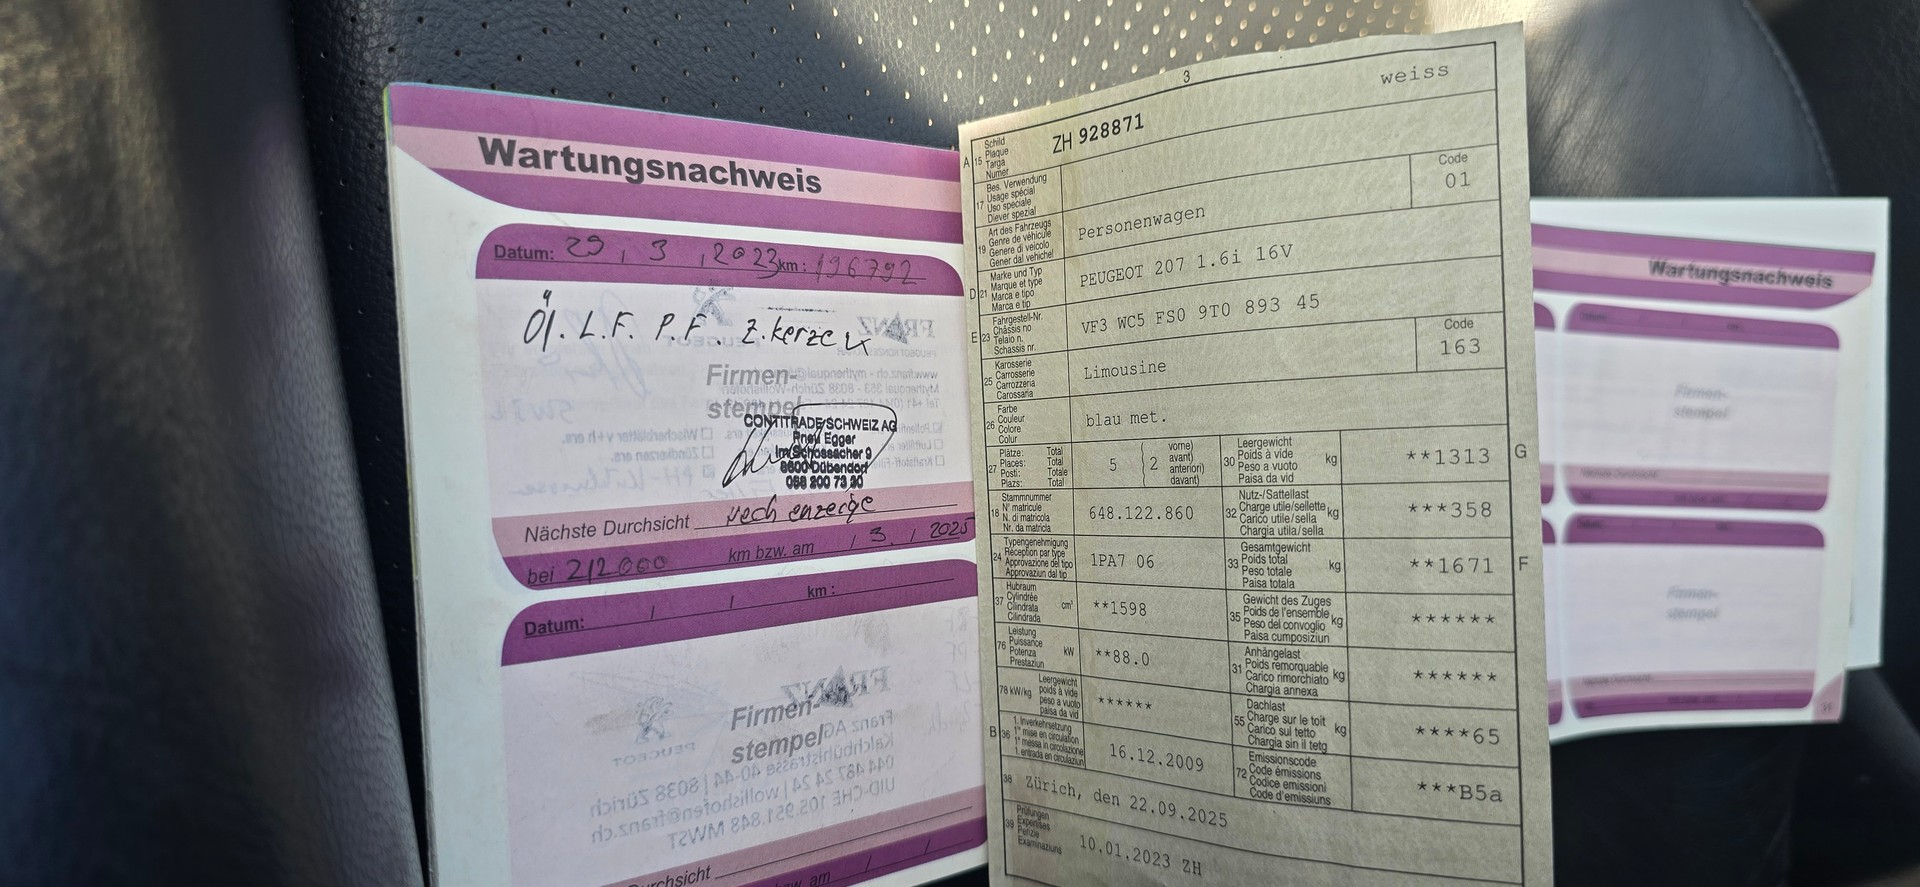 Wartungsnachweis
Datum: 29 . 3 . 2023 km : 196792
Öl. L.F. P.F. Z.kerzen
Firmen-
stempel
CONTITRADE SCHWEIZ AG
Pneu Egger
Im Schossacher 9
8600 Dübendorf
Nächste Durchsicht
bei 212000 km bzw. am / 3. / 2025
Datum: / / km :
Firmen-
stempel
3
weiss
A 15 Schild Plaque Targa Numer ZH 928871
17 Bes. Verwendung Usage spécial Uso speciale Diever spezial
Code 01
19 Art des Fahrzeugs Genre de véhicule Genere di veicolo Gener dal vehichel Personenwagen
D 21 Marke und Typ Marque et type Marca e tipo Marca e tip PEUGEOT 207 1.6i 16V
E 23 Fahrgestell-Nr. Châssis no Telaio n. Schassis nr. VF3 WC5 FS0 9T0 893 45
25 Karosserie Carrosserie Carrozzeria Carossaria Limousine
Code 163
26 Farbe Couleur Colore Colur blau met.
27 Plätze: Total Places: Total Posti: Totale Plazs: Total 5 2 vorne) avant) anteriori) davant)
30 Leergewicht Poids à vide Peso a vuoto Paisa da vid kg **1313 G
18 Stammnummer N° matricule N. di matricola Nr. da matricla 648.122.860
32 Nutz-/Sattellast Charge utile/sellette Carico utile/sella Chargia utila/sella kg ***358
24 Typengenehmigung Réception par type Approvazione del tipo Approvaziun dal tip 1PA7 06
33 Gesamtgewicht Poids total Peso totale Paisa totala kg **1671 F
37 Hubraum Cylindrée Cilindrata Cilindrada cm³ **1598
35 Gewicht des Zuges Poids de l'ensemble Peso del convoglio Paisa cumposiziun kg ******
76 Leistung Puissance Potenza Prestaziun kW **88.0
31 Anhängelast Poids remorquable Carico rimorchiato Chargia annexa kg ******
78 kW/kg Leergewicht poids à vide peso a vuoto paisa da vid ******
55 Dachlast Charge sur le toit Carico sul tetto Chargia sin il tetg kg ****65
B 36 1. Inverkehrsetzung 1re mise en circulation 1a messa in circolazione 1. entrada en circulaziun 16.12.2009
72 Emissionscode Code émissions Codice emissioni Code d'emissiuns ***B5a
38 Zürich, den 22.09.2025
39 Prüfungen Expertises Perizie Examinaziuns 10.01.2023 ZH
Wartungsnachweis
Firmen-
stempel
Firmen-
stempel